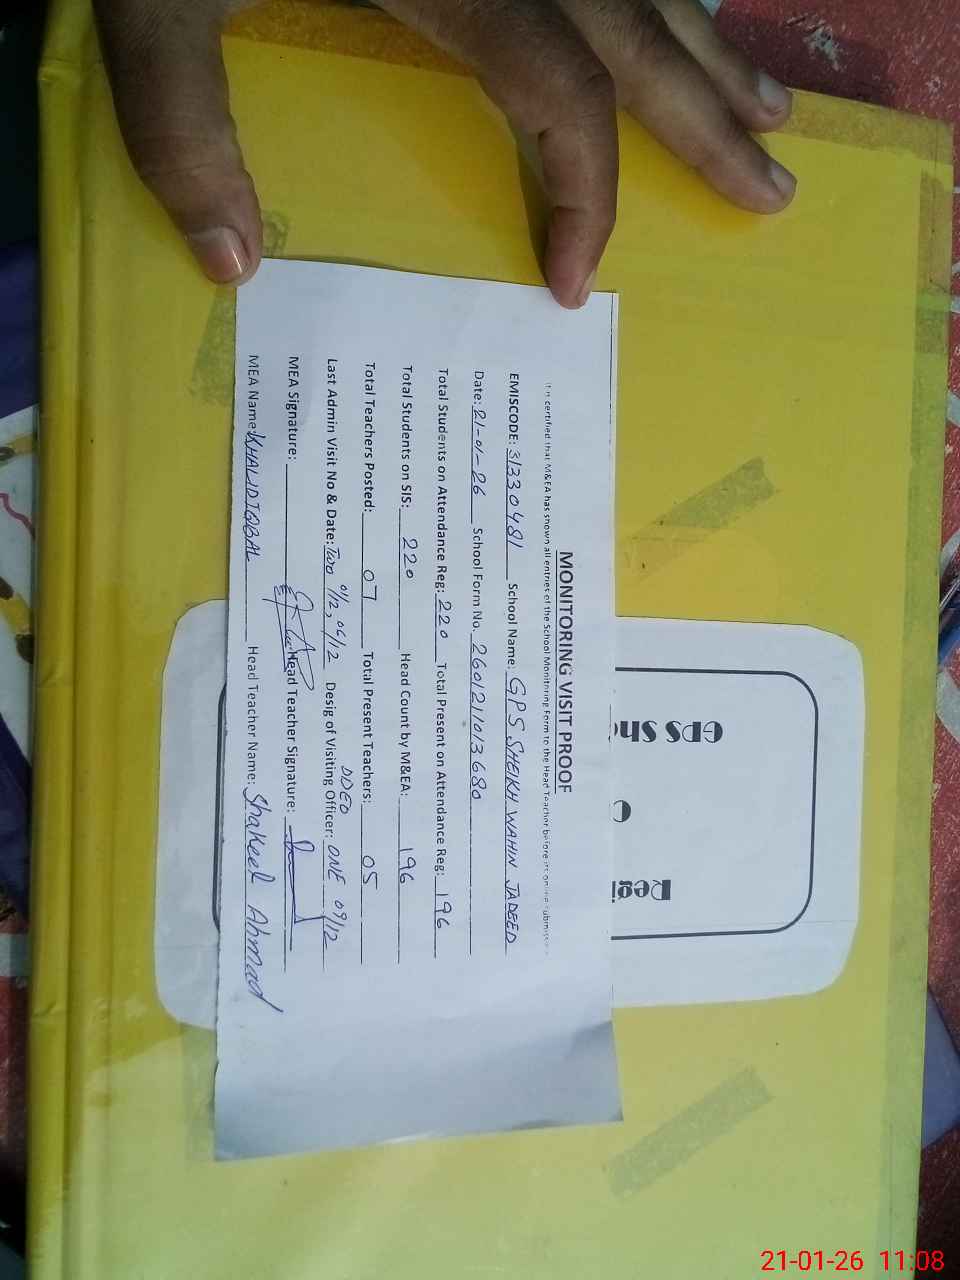 MONITORING VISIT PROOF
It is certified that M&EA has shown all entries of the School Monitoring Form to the Head Teacher before its online submission
EMISCODE: 31330481 School Name: GPS SHEIKH WAHIN JADEED
Date: 21-01-26 School Form No. 2601211013680
Total Students on Attendance Reg: 220 Total Present on Attendance Reg: 196
Total Students on SIS: 220 Head Count by M&EA: 196
Total Teachers Posted: 07 Total Present Teachers: 05
Last Admin Visit No & Date: Two 01/12, 06/12 Desig of Visiting Officer: DDEO ONE 09/12
MEA Signature: Head Teacher Signature:
MEA Name: KHALID IQBAL Head Teacher Name: Shakeel Ahmad
GPS She
Regi
21-01-26 11:08